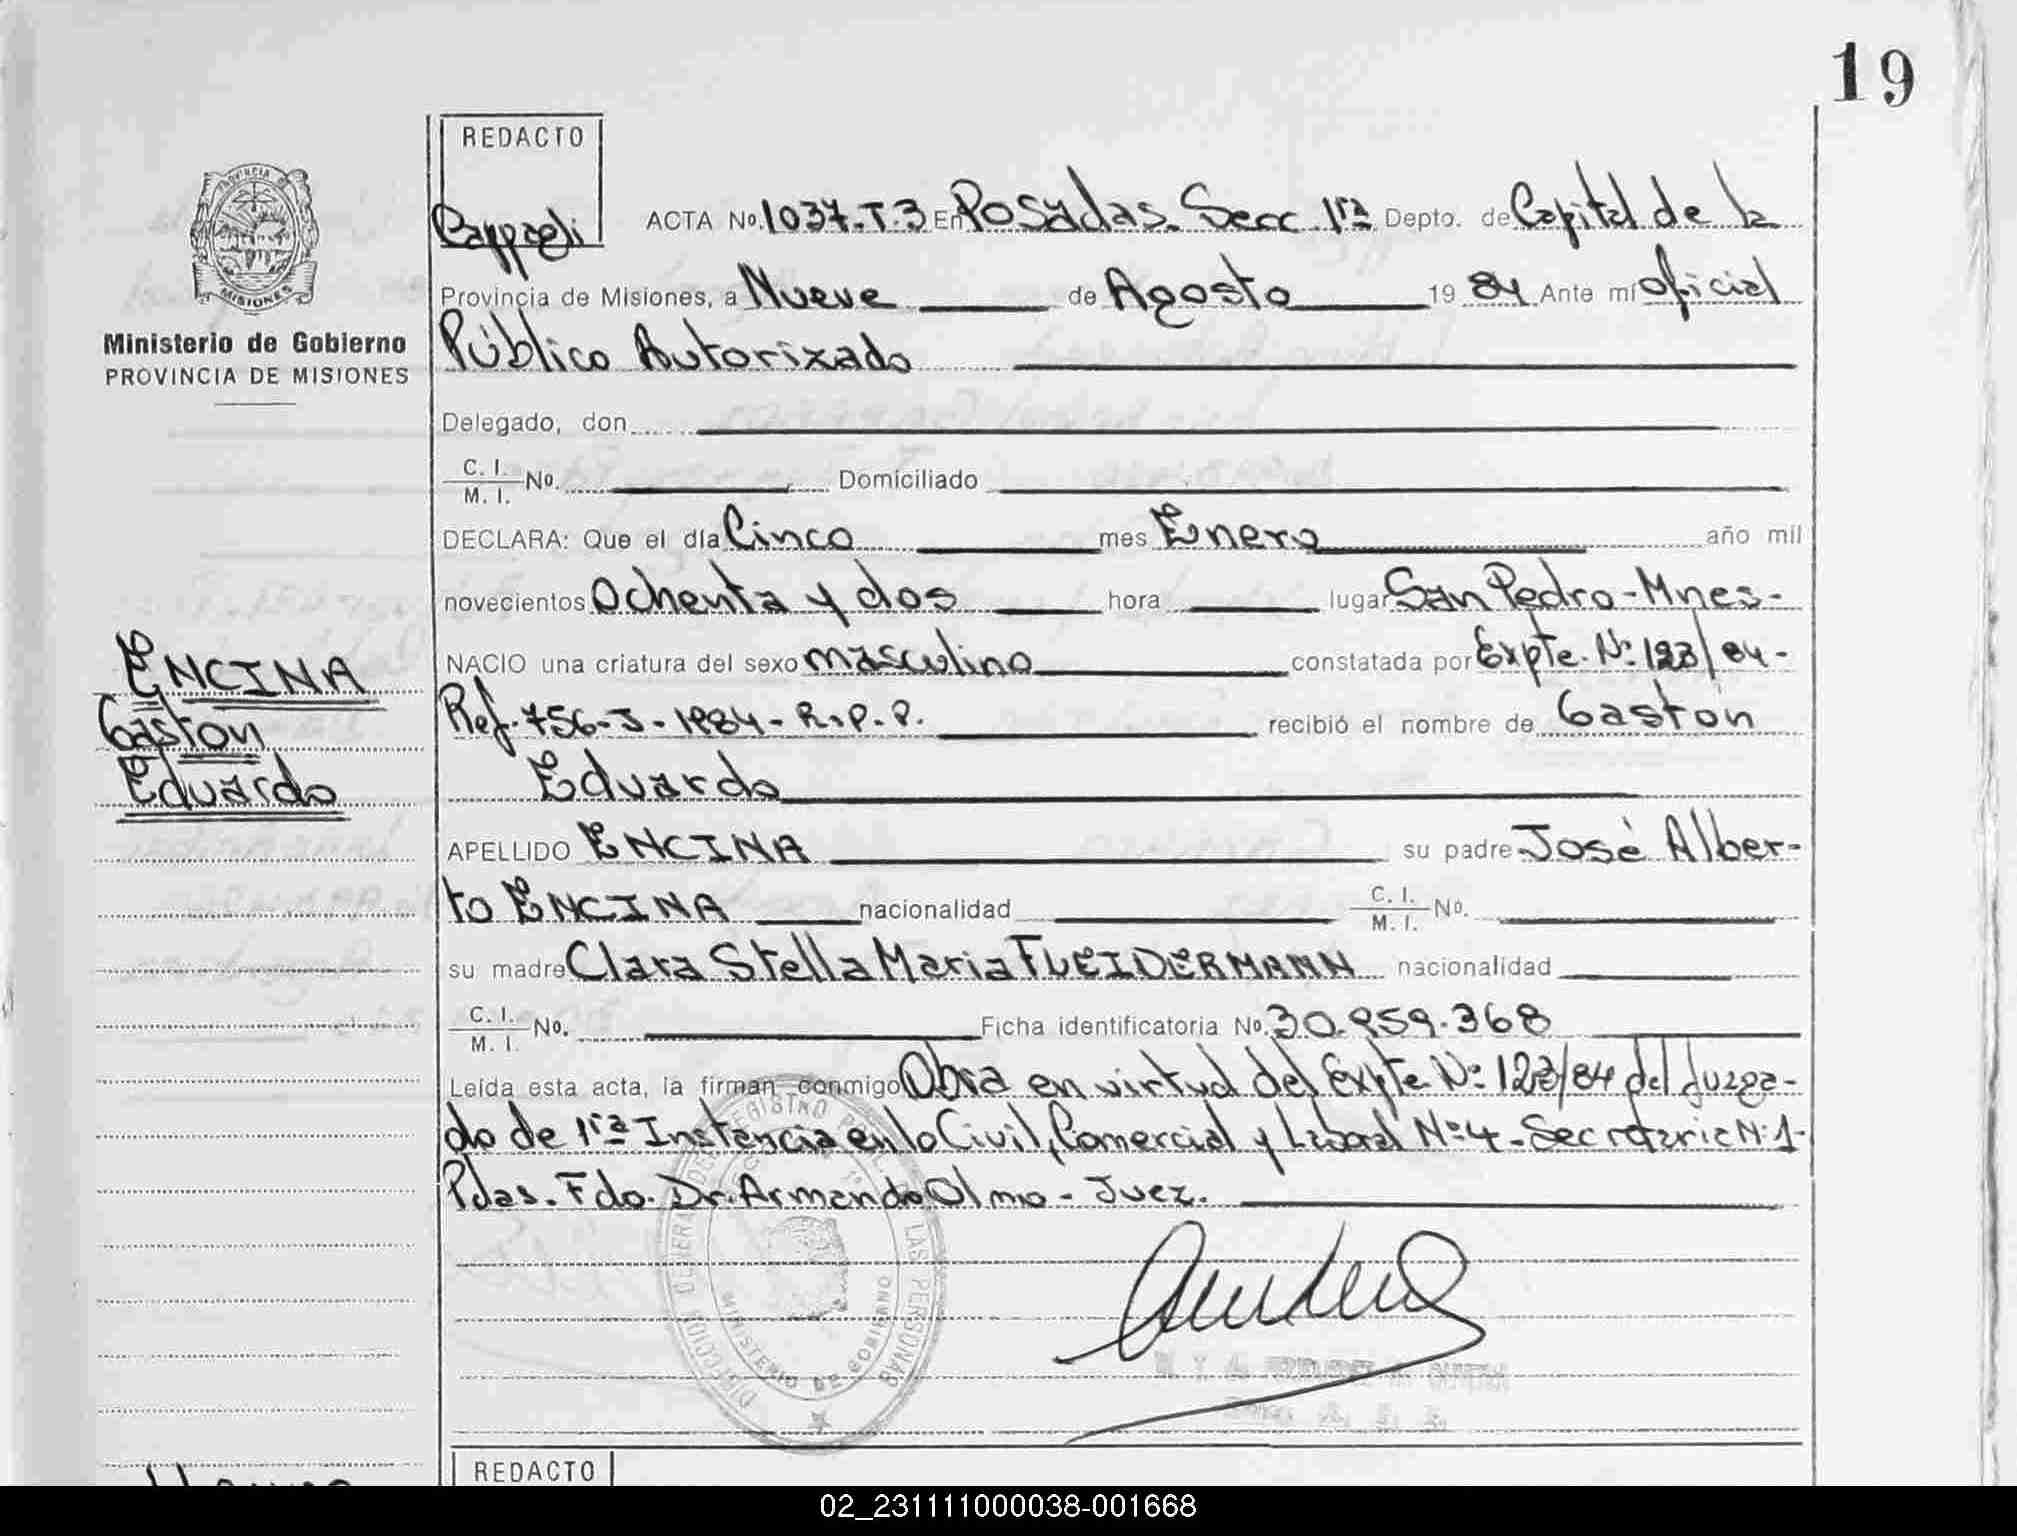 19
REDACTO
Cappagli
ACTA No. 1037-T.3 En Posadas. Secc. 1ra Depto. de Capital de la
PROVINCIA DE
MISIONES
Provincia de Misiones, a Nueve de Agosto 19 84 Ante mí Oficial
Ministerio de Gobierno
PROVINCIA DE MISIONES
Público Autorizado
Delegado, don
C. I.
M. I. No. Domiciliado
DECLARA: Que el día Cinco mes Enero año mil
novecientos Ochenta y dos hora lugar San Pedro-Mnes-
NACIO una criatura del sexo masculino constatada por Expte. Nº 123/84-
ENCINA
Gastón
Eduardo
Ref. 756-J-1984-R.P.P. recibió el nombre de Gastón
Eduardo
APELLIDO ENCINA su padre José Alber-
to ENCINA nacionalidad C. I.
M. I. No.
su madre Clara Stella Maria FLEIDERMANN nacionalidad
C. I.
M. I. No. Ficha identificatoria No. 30.959.368
Leída esta acta, la firman conmigo Obra en virtud del Expte. Nº 123/84 del Juzga-
do de 1ra Instancia en lo Civil, Comercial y Laboral Nº 4-Secretaria Nº 1-
Pdas. Fdo. Dr. Armando Olmo-Juez.
MINISTERIO DE GOBIERNO
REDACTO
02_231111000038-001668